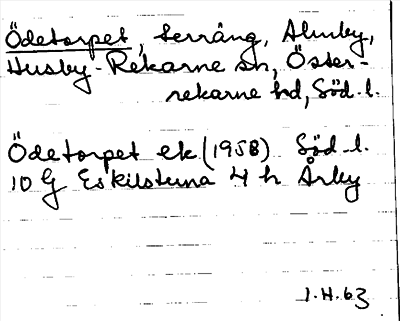 Ödetorpet, terräng, Almby,
Husby-Rekarne sn, Öster-
rekarne hd, Söd. l.
Ödetorpet ek (1958) Söd. l.
10 G Eskilstuna 4 h Årby
1.H.63